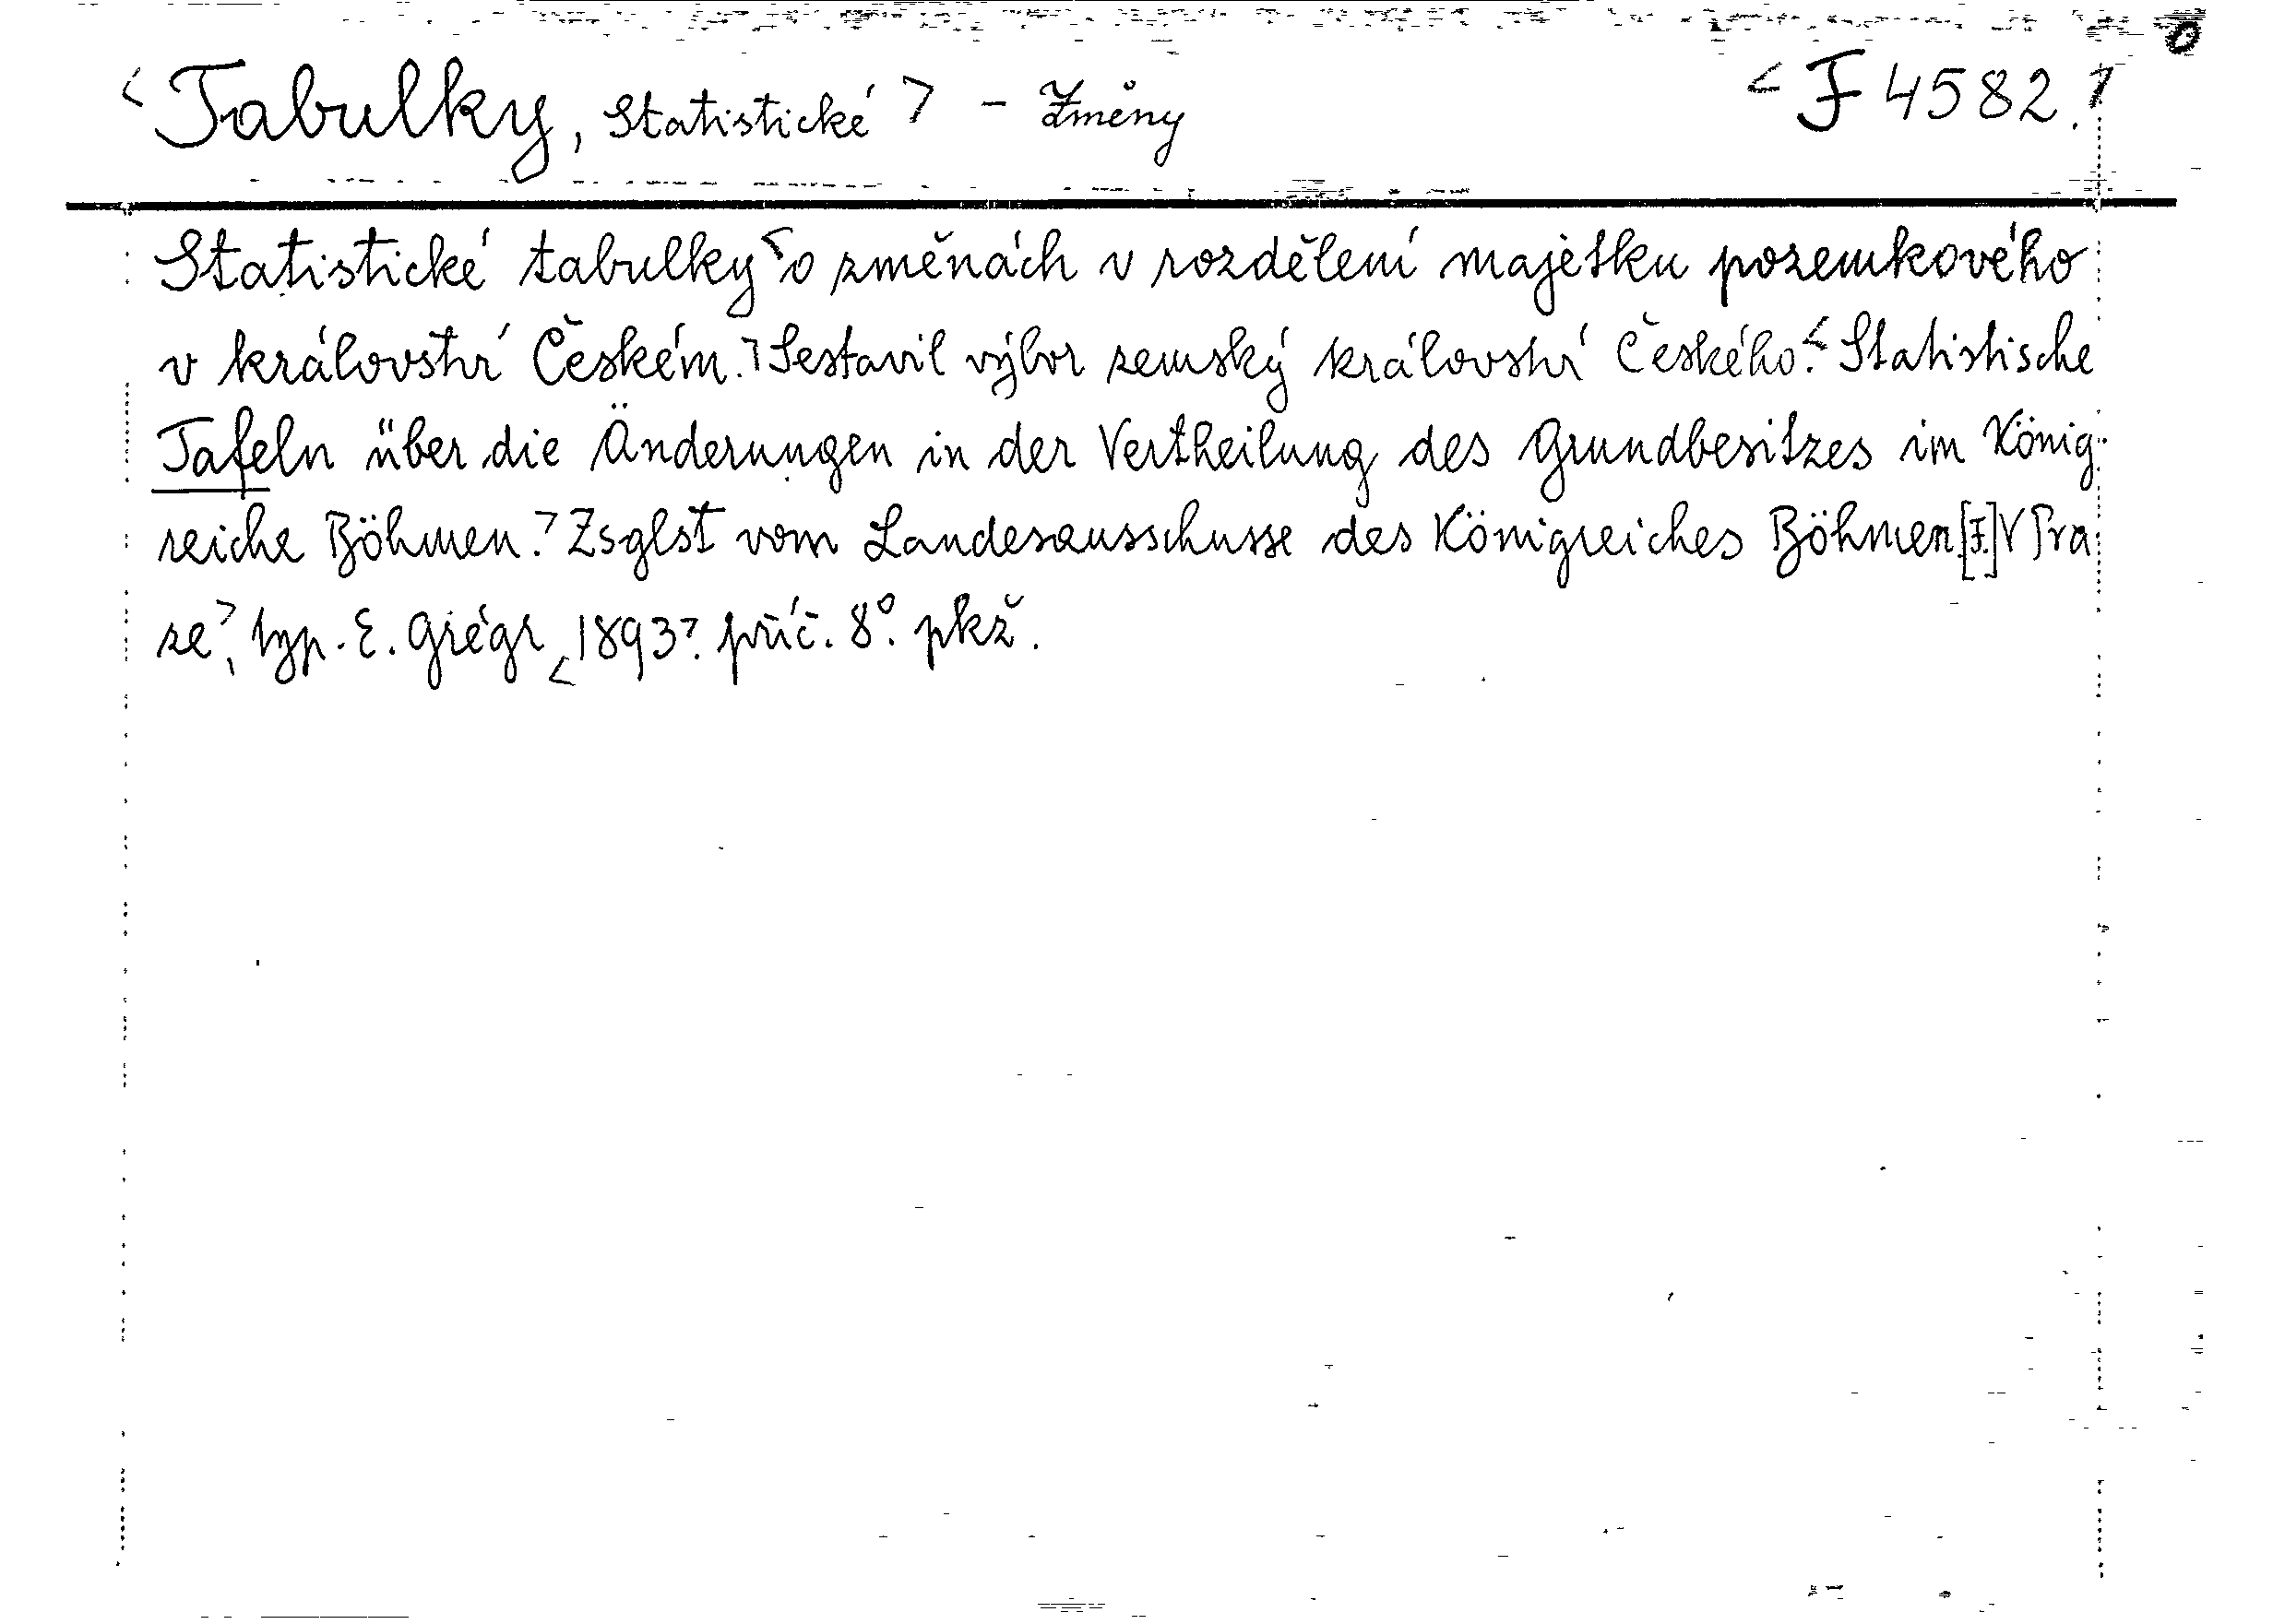 <Tabulky, Statistické> - Změny <F 4582.>
Statistické tabulky <o změnách v rozdělení majetku pozemkového
v království Českém.> Sestavil výbor zemský království Českého.< Statistische
Tafeln über die Änderungen in der Vertheilung des Grundbesitzes im König-
reiche Böhmen.> Zsglst vom Landesausschusse des Königreiches Böhmen [I.] V Pra
ze>, typ. E. Grégr <1893>. příč. 8°. pkž.